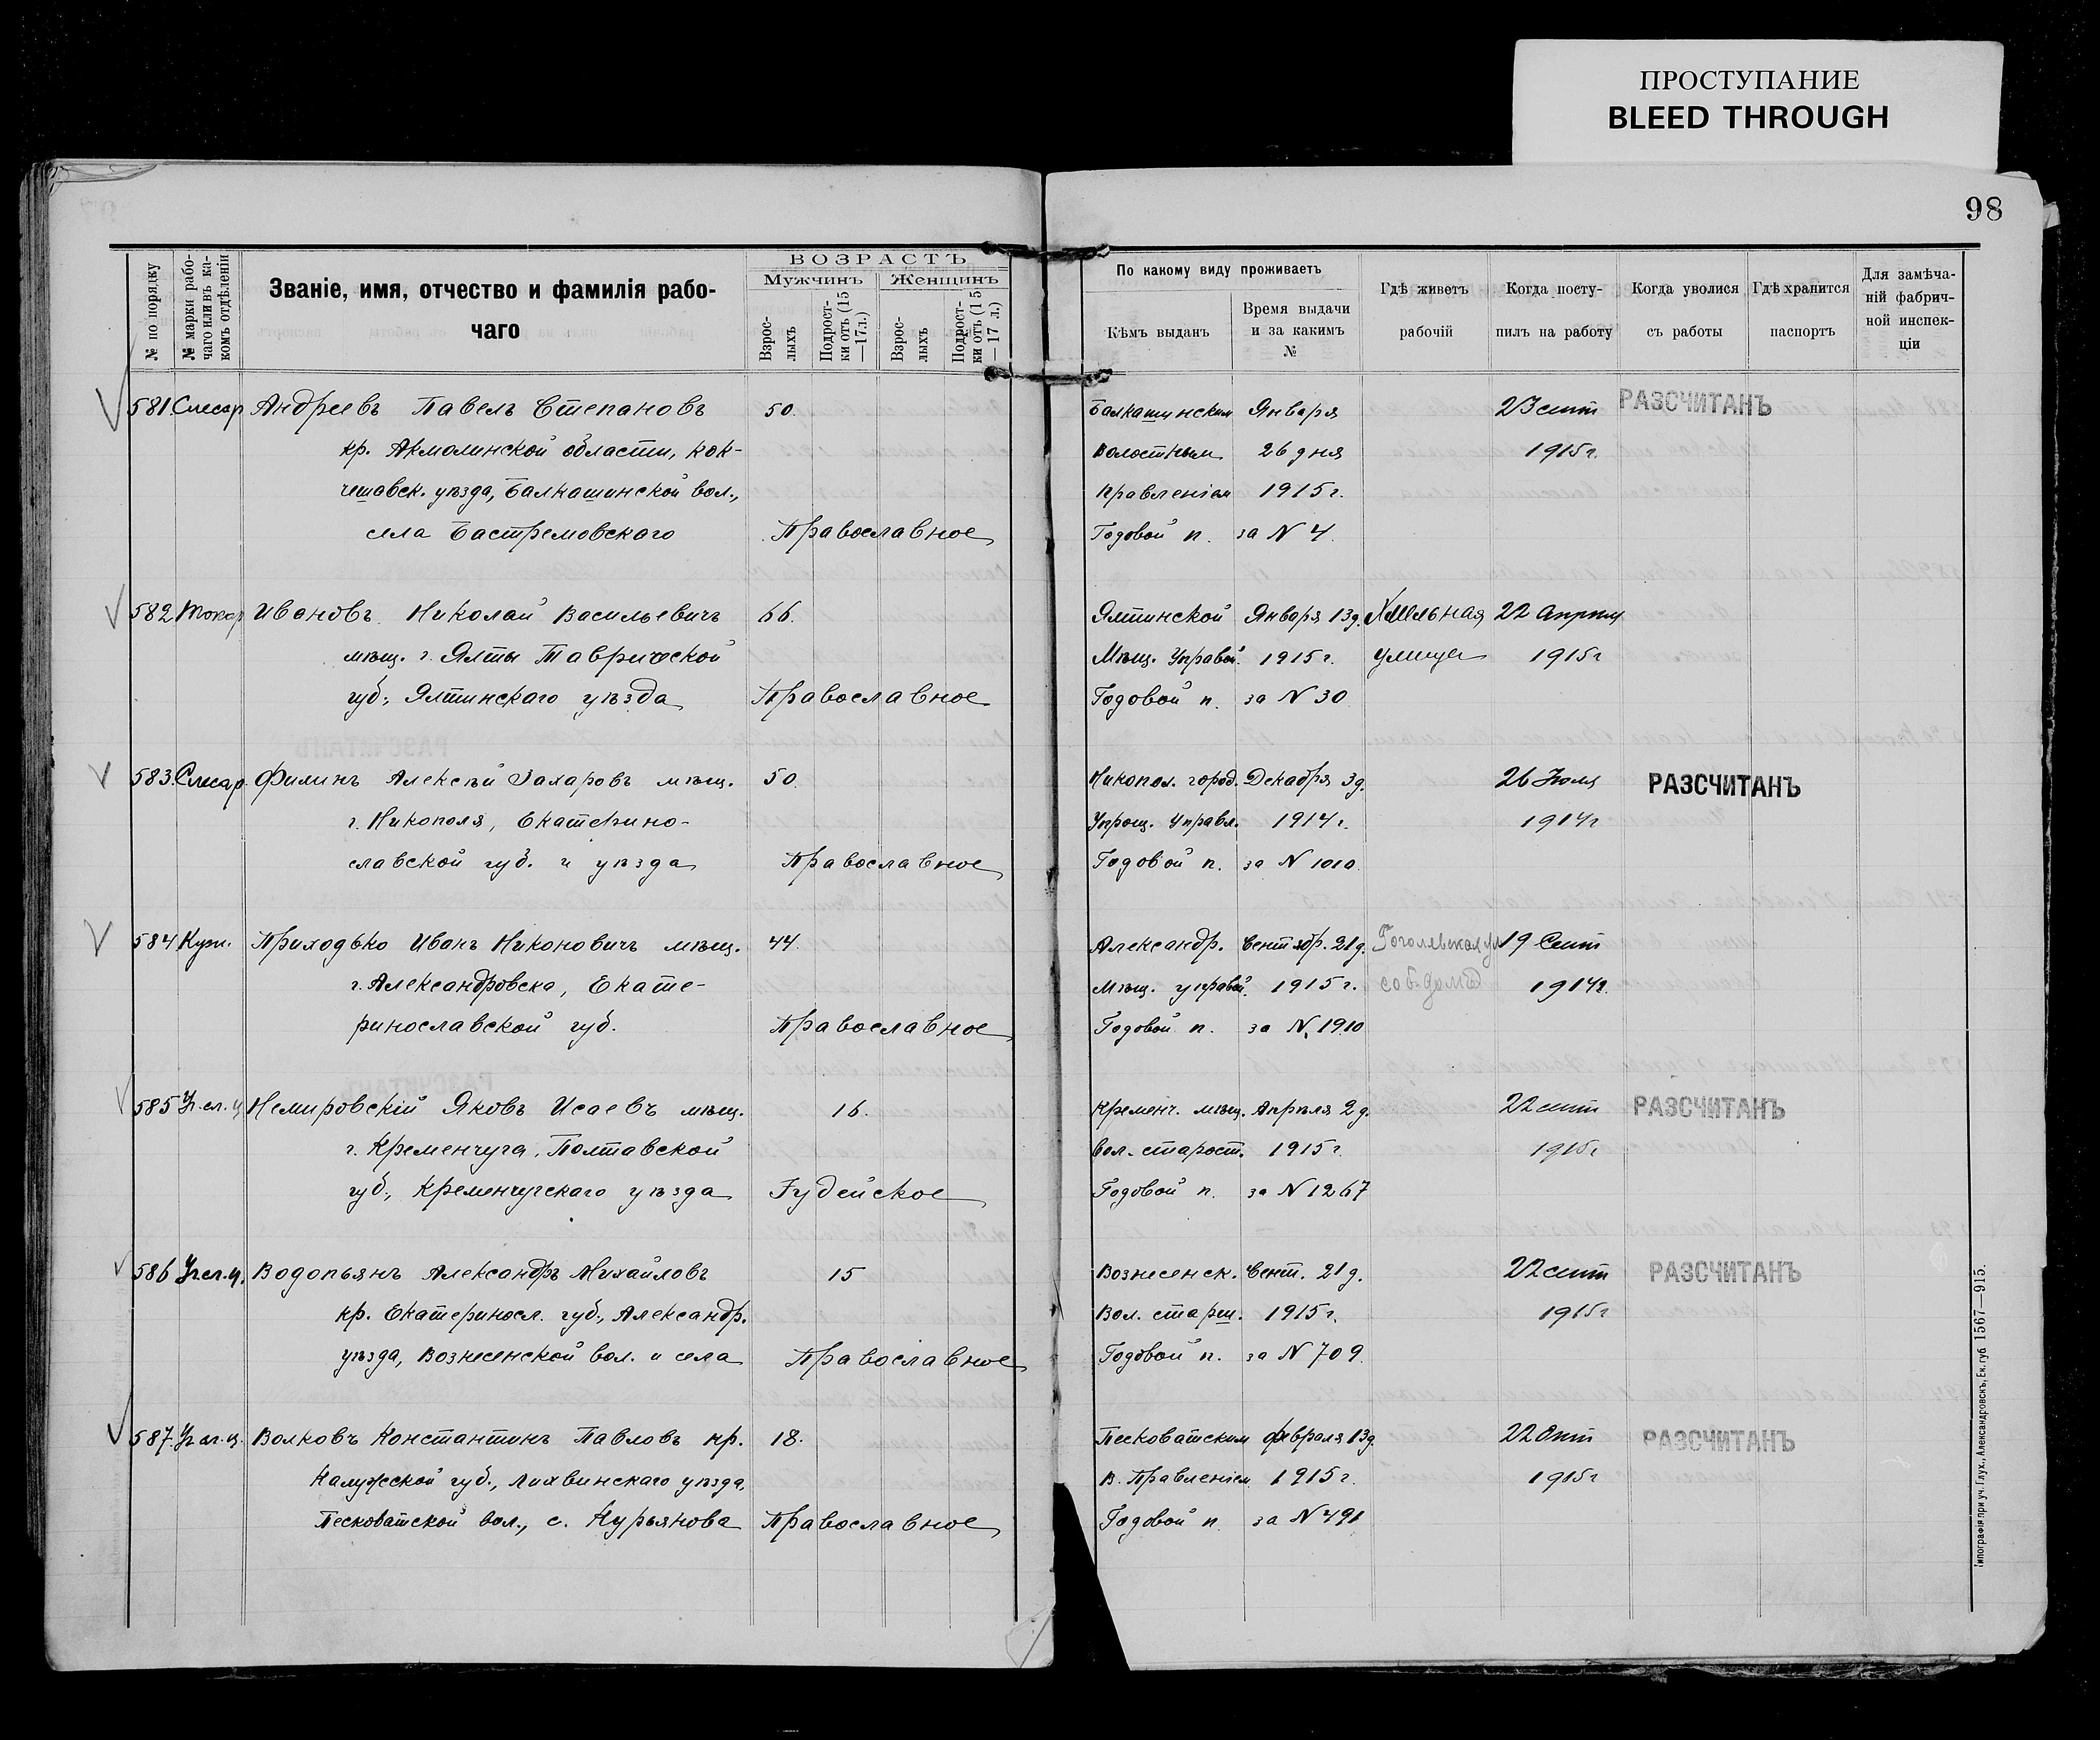 ПРОСТУПАНИЕ
BLEED THROUGH
98
№ по порядку
№ марки рабо-
чаго или въ ка-
комъ отдѣленіи
Званіе, имя, отчество и фамилія рабо-
чаго
ВОЗРАСТЪ
Мужчинъ
Женщинъ
Взрос-
лыхъ
Подрост-
ки отъ (15
—17л.)
Взрос-
лыхъ
Подрост-
ки отъ (15
— 17 л.)
По какому виду проживаетъ
Кѣмъ выданъ
Время выдачи
и за какимъ
№
Гдѣ живетъ
рабочій
Когда посту-
пилъ на работу
Когда уволися
съ работы
Гдѣ хранится
паспортъ
Для замѣча-
ній фабрич-
ной инспек-
ціи
581 Слесар Андреевъ Павелъ Степановъ 50. Балкашинским Января 23 сент РАЗСЧИТАНЪ
кр. Акмолинской области, Кок- Волостным 26 дня 1915 г.
четавск. уѣзда, Балкашинской вол., правленіем 1915 г.
села Бастремовскаго Православное Годовой п. за N 4.
582 Токар Ивановъ Николай Васильевичъ 66. Ялтинской Января 13 д. Хмельная 22 апреля
мѣщ. г. Ялты Таврической Мѣщ. Управой. 1915 г. улица 1915 г
губ., Ялтинскаго уѣзда Православное Годовой п. за N 30
583. Слесар. Филинъ Алексѣй Захаровъ мѣщ. 50. Никопол. город. Декабря 3 д. 26 Июля РАЗСЧИТАНЪ
г. Никополя, Екатерино- Упрощ. Управл. 1914 г. 1914 г
славской губ. и уѣзда Православное Годовой п. за N 1010.
584 Кузн. Приходько Иванъ Никоновичъ мѣщ. 44. Александр. Сентябр. 21 д. Гоголевская ул 19 Сент
г. Александровска, Екате- Мѣщ. управой. 1915 г. соб. домъ 1914 г.
ринославской губ. Православное Годовой п. за N 1910
585 Уч. сл. ц Немировскій Яковъ Исаевъ мѣщ. 16. Кременч. мѣщ. Апрѣля 2 д. 22 сент РАЗСЧИТАНЪ
г. Кременчуга, Полтавской вол. старост. 1915 г. 1915 г
губ., Кременчугскаго уѣзда Іудейское Годовой п. за N 1267
586 Уч сл. ц. Водопьянъ Александръ Михайловъ 15 Вознесенск. Сент. 21 д. 22 сент РАЗСЧИТАНЪ
кр. Екатериносл. губ., Александр. Вол. старш. 1915 г. 1915 г
уѣзда, Вознесенской вол. и села Православное Годовой п. за N 709.
587. Уч сл. ц. Волковъ Константинъ Павловъ кр. 18. Песковатским февраля 13 д. 22 РАЗСЧИТАНЪ
Калужской губ., Лихвинскаго уѣзда, В. Правленіем 1915 г. 1915 г
Песковатской вол., с. Курьянова Православное Годовой п. за N 491
Типографія при уч. Глух., Александровскъ, Ек. губ. 1567—915.